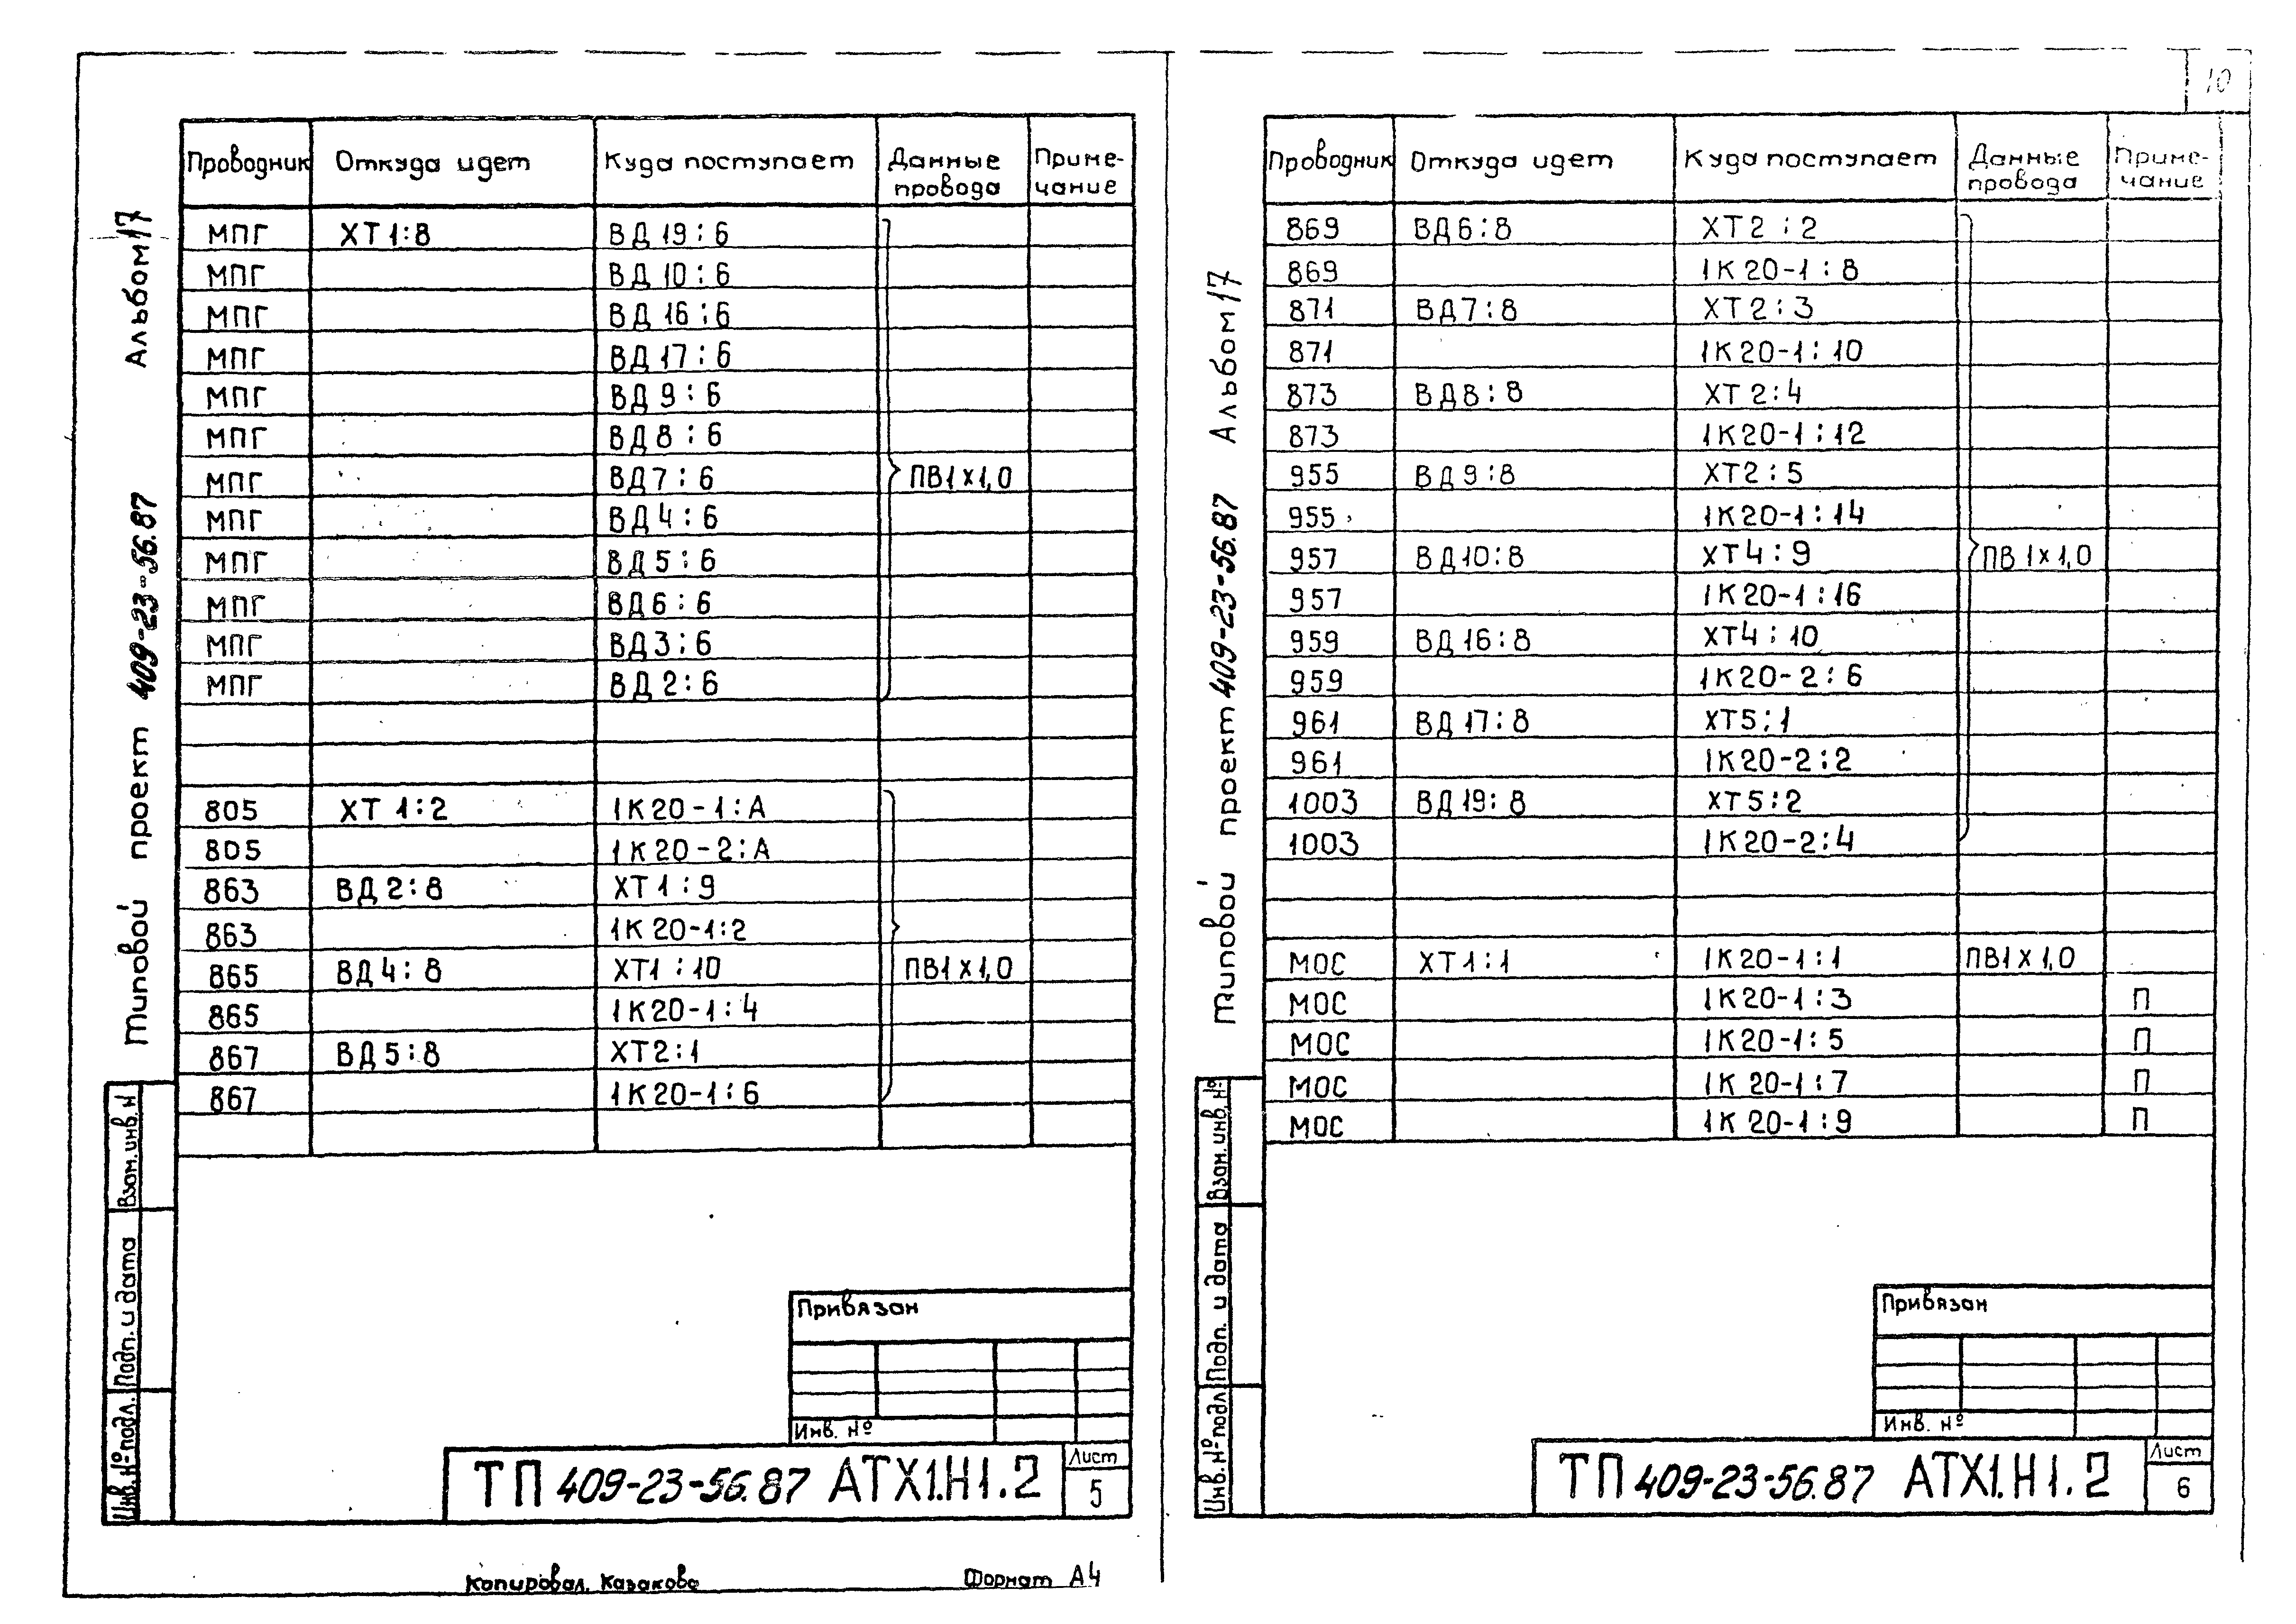 10
Альбом 17
Типовой проект 409-23-56.87
Проводник Откуда идет Куда поступает Данные провода Приме-чание
МПГ ХТ1:8 ВД19:6
МПГ ВД10:6
МПГ ВД16:6
МПГ ВД17:6
МПГ ВД9:6
МПГ ВД8:6
МПГ ВД7:6 ПВ1х1,0
МПГ ВД4:6
МПГ ВД5:6
МПГ ВД6:6
МПГ ВД3:6
МПГ ВД2:6
805 ХТ1:2 1К20-1:А
805 1К20-2:А
863 ВД2:8 ХТ1:9
863 1К20-1:2
865 ВД4:8 ХТ1:10 ПВ1х1,0
865 1К20-1:4
867 ВД5:8 ХТ2:1
867 1К20-1:6
Взам. инв. №
Подп. и дата
Инв. № подл.
Привязан
Инв. №
ТП 409-23-56.87 АТХ1.Н1.2
Лист
5
Копировал. Казакова Формат А4
Альбом 17
Типовой проект 409-23-56.87
Проводник Откуда идет Куда поступает Данные провода Приме-чание
869 ВД6:8 ХТ2:2
869 1К20-1:8
871 ВД7:8 ХТ2:3
871 1К20-1:10
873 ВД8:8 ХТ2:4
873 1К20-1:12
955 ВД9:8 ХТ2:5
955 1К20-1:14
957 ВД10:8 ХТ4:9 ПВ1х1,0
957 1К20-1:16
959 ВД16:8 ХТ4:10
959 1К20-2:6
961 ВД17:8 ХТ5:1
961 1К20-2:2
1003 ВД19:8 ХТ5:2
1003 1К20-2:4
МОС ХТ1:1 1К20-1:1 ПВ1х1,0
МОС 1К20-1:3 П
МОС 1К20-1:5 П
МОС 1К20-1:7 П
МОС 1К20-1:9 П
Взам. инв. №
Подп. и дата
Инв. № подл.
Привязан
Инв. №
ТП 409-23-56.87 АТХ1.Н1.2
Лист
6